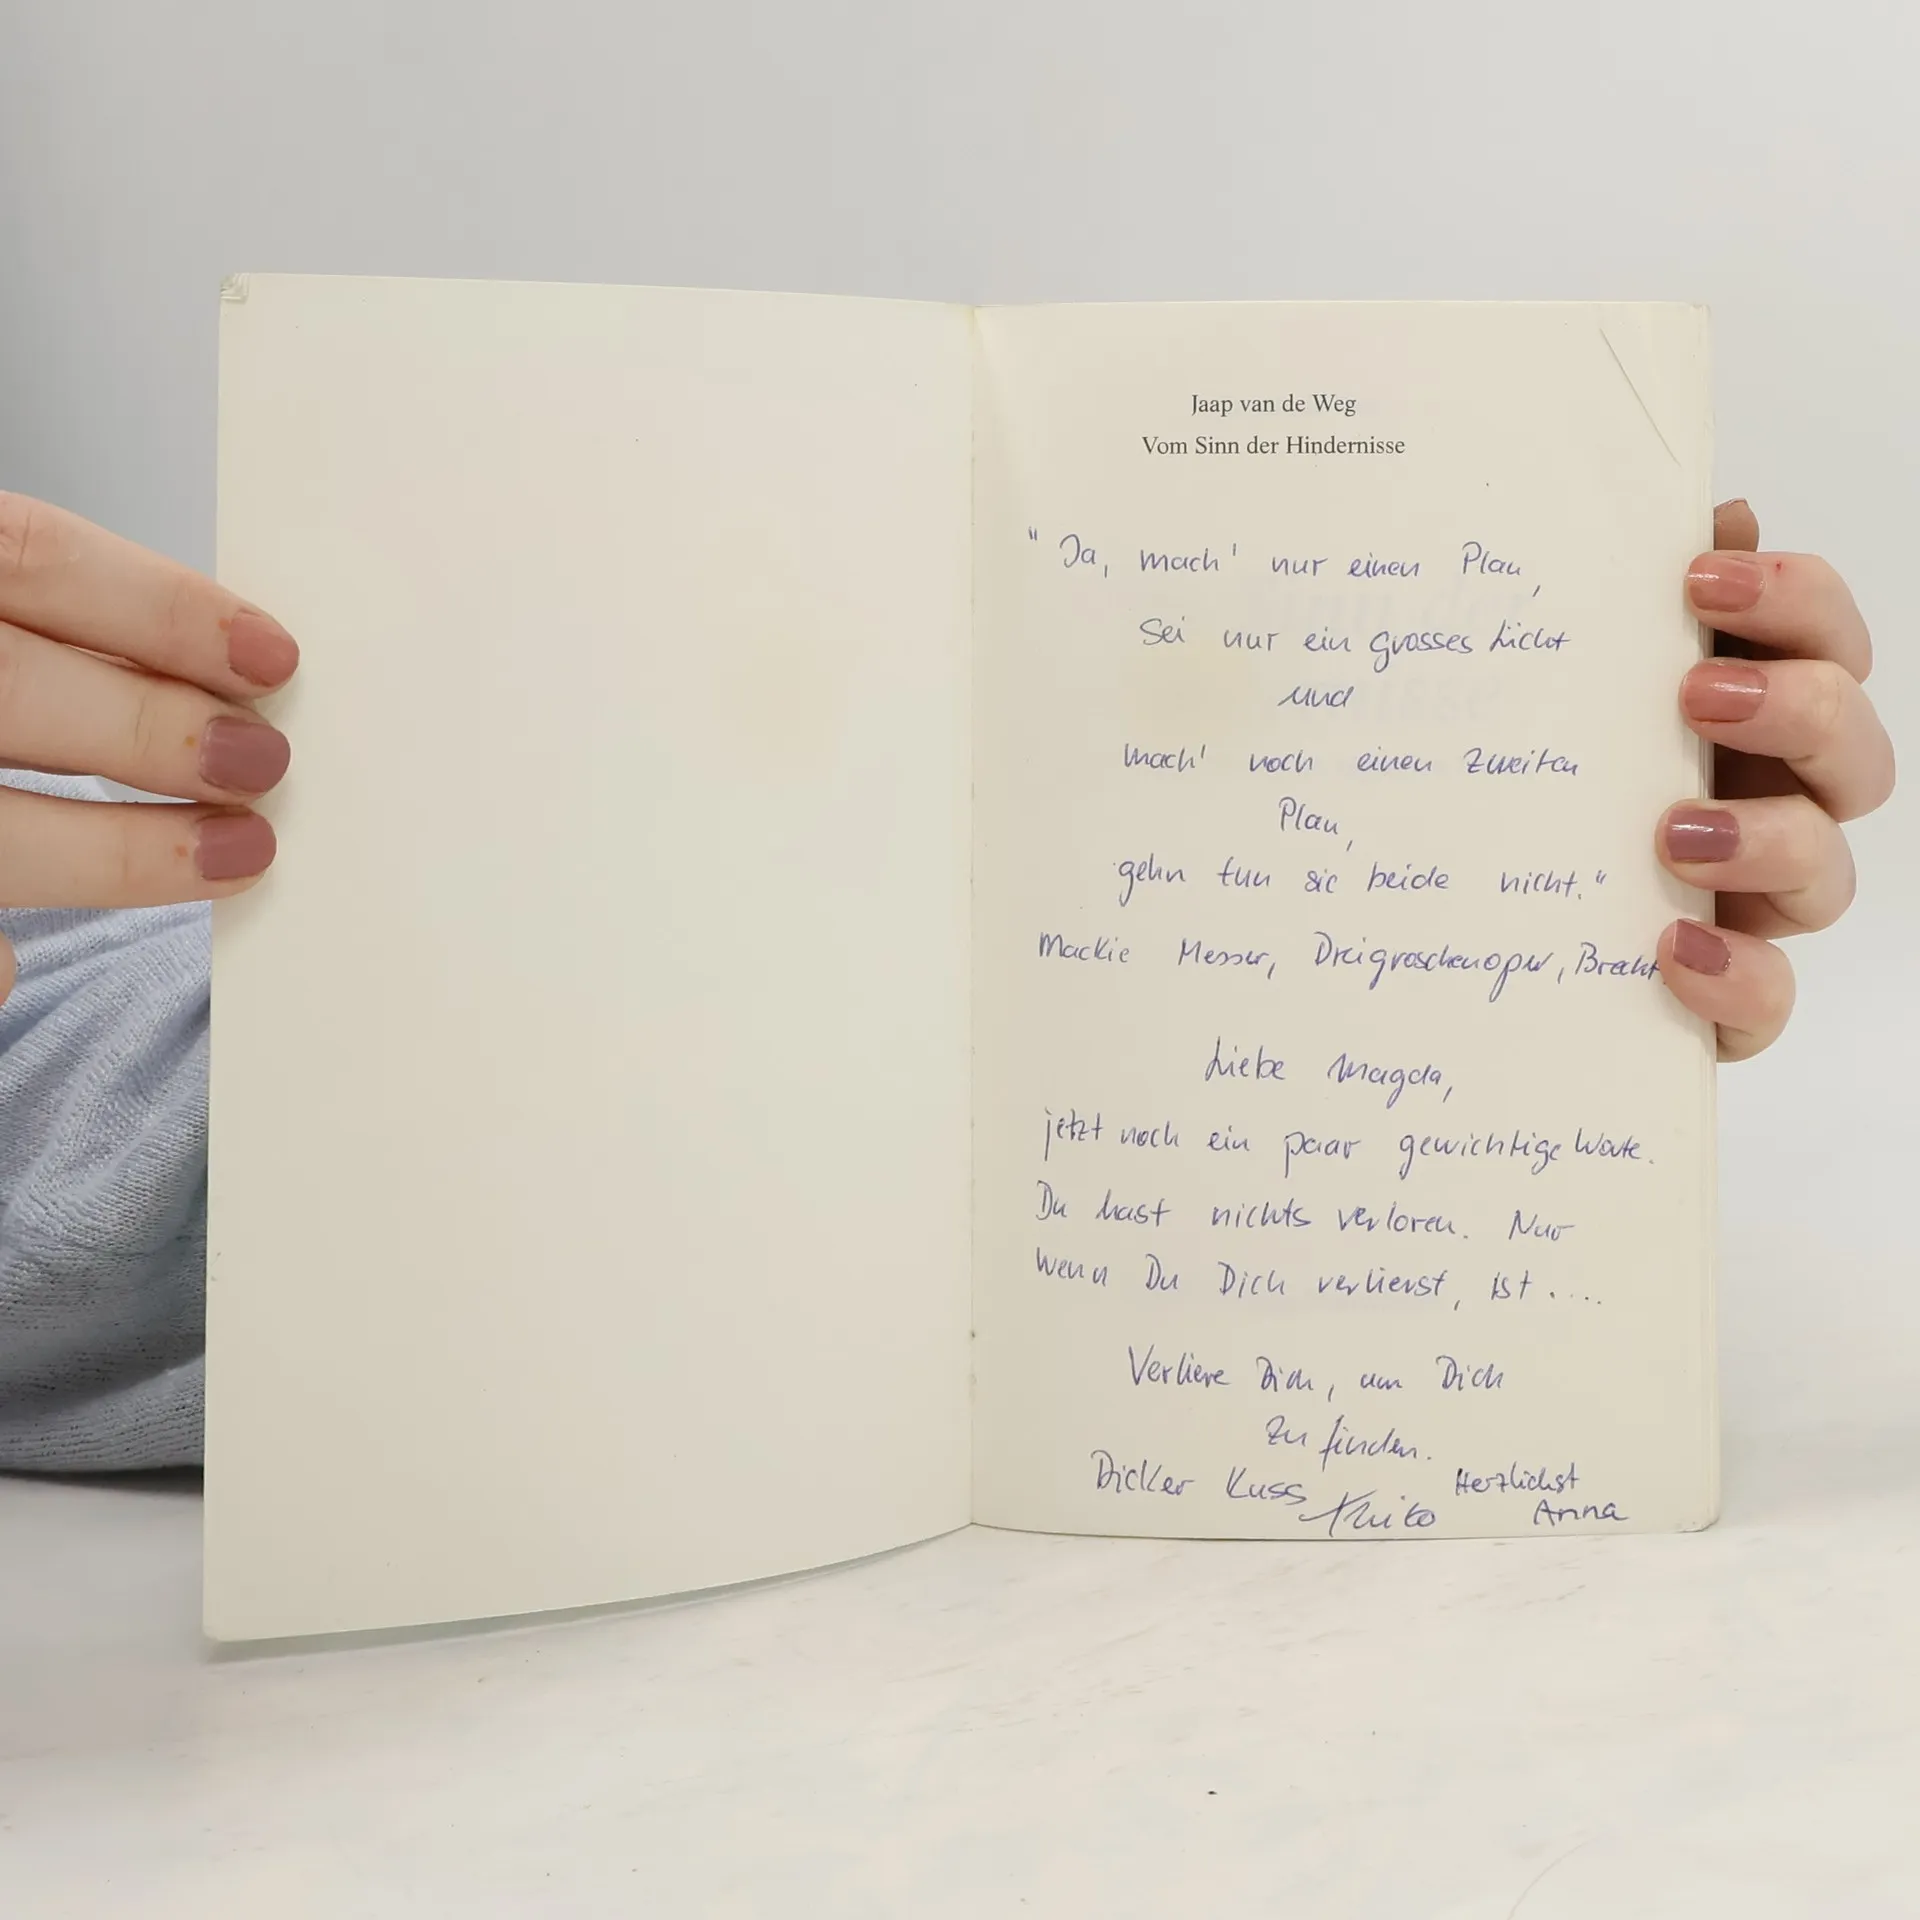 Jaap van de Weg
Vom Sinn der Hindernisse
" Ja, mach' nur einen Plan,
Sei nur ein grosses Licht
und
mach' noch einen zweiten
Plan,
gehn tun sie beide nicht."
Mackie Messer, Dreigroschenoper, Brecht
Liebe Magda,
jetzt noch ein paar gewichtige Worte.
Du hast nichts verloren. Nur
wenn Du Dich verlierst, ist ....
Verliere Dich, um Dich
zu finden.
Dicker Kuss
Herzlichst
Anna